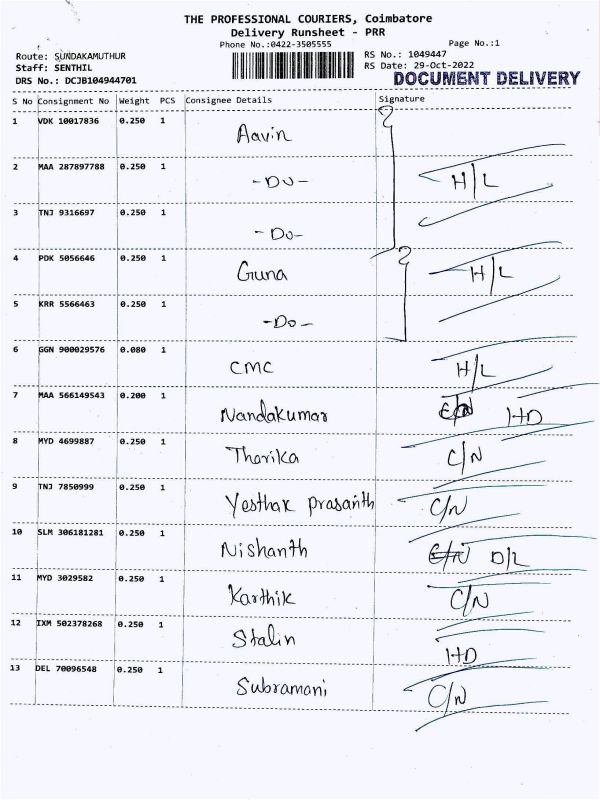 THE PROFESSIONAL COURIERS, Coimbatore
Delivery Runsheet - PRR
Phone No.:0422-3505555
Page No.:1
Route: SUNDAKAMUTHUR
RS No.: 1049447
Staff: SENTHIL
RS Date: 29-Oct-2022
DRS No.: DCJB104944701
DOCUMENT DELIVERY
S No Consignment No Weight PCS Consignee Details Signature
1 VDK 10017836 0.250 1 Aavin
2 MAA 287897788 0.250 1 -Do- H/L
3 TNJ 9316697 0.250 1 -Do-
4 PDK 5056646 0.250 1 Guna H/L
5 KRR 5566463 0.250 1 -Do-
6 GGN 900029576 0.080 1 CMC H/L
7 MAA 566149543 0.200 1 Nandakumar HD
8 MYD 4699887 0.250 1 Tharika C/N
9 TNJ 7850999 0.250 1 Yesthak prasanth C/N
10 SLM 306181281 0.250 1 Nishanth D/L
11 MYD 3029582 0.250 1 Karthik C/N
12 IXM 502378268 0.250 1 Stalin HD
13 DEL 70096548 0.250 1 Subramani C/N